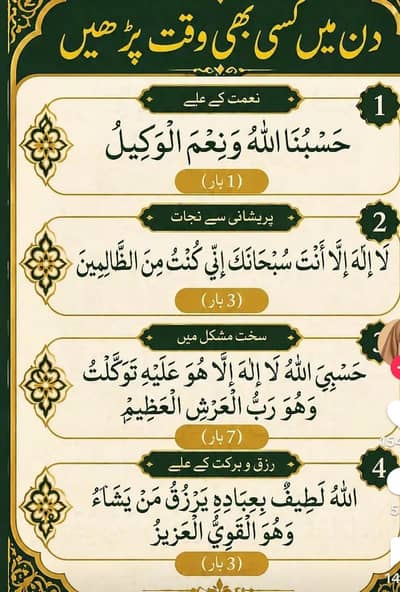 دن میں کسی بھی وقت پڑھیں
1
نعمت کے علے
حَسْبُنَا اللهُ وَنِعْمَ الْوَكِيلُ
(1 بار)
2
پریشانی سے نجات
لَا إِلٰهَ إِلَّا أَنْتَ سُبْحَانَكَ إِنِّي كُنْتُ مِنَ الظَّالِمِينَ
(3 بار)
سخت مشکل میں
حَسْبِيَ اللهُ لَا إِلٰهَ إِلَّا هُوَ عَلَيْهِ تَوَكَّلْتُ
وَهُوَ رَبُّ الْعَرْشِ الْعَظِيمِ
(7 بار)
4
رزق و برکت کے علے
اللهُ لَطِيفٌ بِعِبَادِهِ يَرْزُقُ مَنْ يَشَاءُ
وَهُوَ الْقَوِيُّ الْعَزِيزُ
(3 بار)